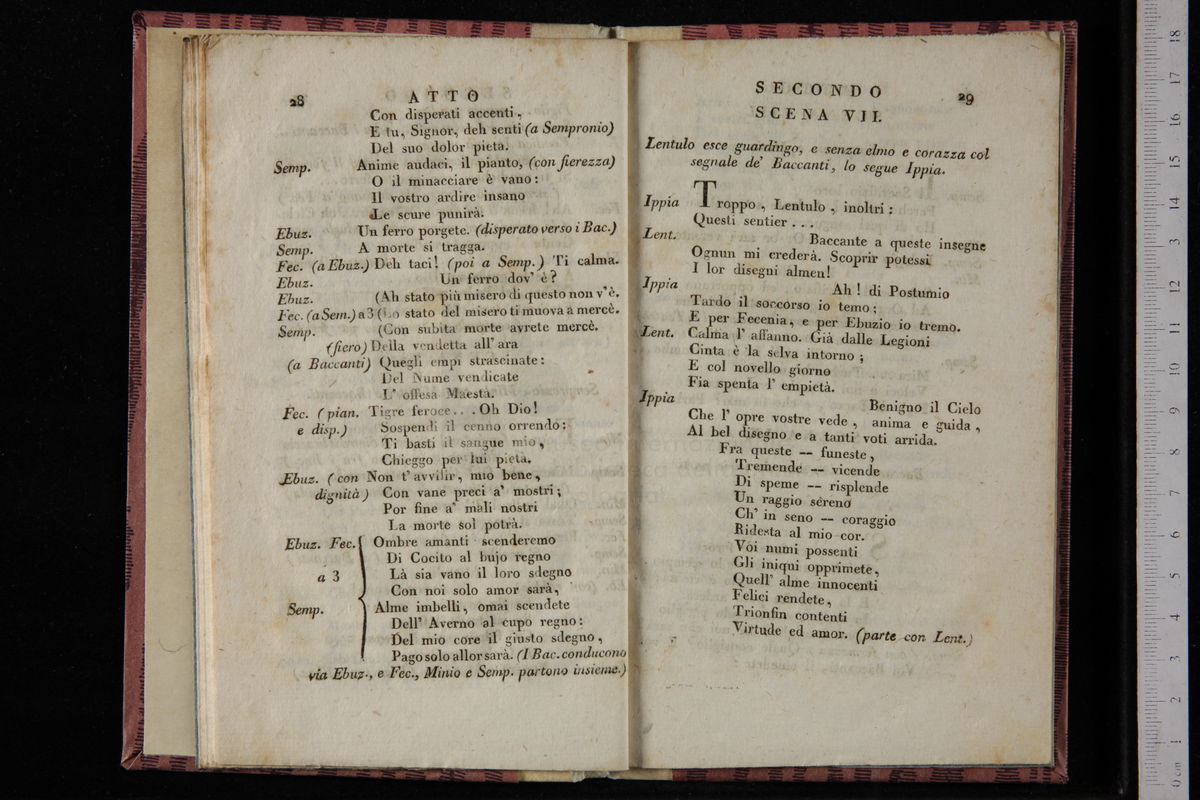 28 ATTO
Con disperati accenti,
E tu, Signor, deh senti (a Sempronio)
Del suo dolor pieta.
Semp. Anime audaci, il pianto, (con fierezza)
O il minacciare è vano:
Il vostro ardire insano
Le scure punirà.
Ebuz. Un ferro porgete. (disperato verso i Bac.)
Semp. A morte si tragga.
Fec. (a Ebuz.) Deh taci! (poi a Semp.) Ti calma.
Ebuz. Un ferro dov' è?
Ebuz. (Ah stato più misero di questo non v'è.
Fec. (a Sem.) a 3 (Lo stato del misero ti muova a mercè.
Semp. (Con subita morte avrete mercè.
(fiero) Della vendetta all' ara
(a Baccanti) Quegli empi strascinate:
Del Nume vendicate
L' offesa Maestà.
Fec. (pian. Tigre feroce... Oh Dio!
e disp.) Sospendi il cenno orrendo:
Ti basti il sangue mio,
Chieggo per lui pietà.
Ebuz. (con Non t' avvilir, mio bene,
dignità) Con vane preci a' mostri;
Por fine a' mali nostri
La morte sol potrà.
Ebuz. Fec. Ombre amanti scenderemo
Di Cocito al bujo regno
a 3 Là sia vano il loro sdegno
Con noi solo amor sarà,
Semp. Alme imbelli, omai scendete
Dell' Averno al cupo regno:
Del mio core il giusto sdegno,
Pago solo allor sarà. (I Bac. conducono
via Ebuz., e Fec., Minio e Semp. partono insieme.)
SECONDO 29
SCENA VII.
Lentulo esce guardingo, e senza elmo e corazza col
segnale de' Baccanti, lo segue Ippia.
Ippia Troppo, Lentulo, inoltri:
Questi sentier...
Lent. Baccante a queste insegne
Ognun mi crederà. Scoprir potessi
I lor disegni almen!
Ippia Ah! di Postumio
Tardo il soccorso io temo:
E per Fecenia, e per Ebuzio io tremo.
Lent. Calma l' affanno. Già dalle Legioni
Cinta è la selva intorno;
E col novello giorno
Fia spenta l' empietà.
Ippia Benigno il Cielo
Che l' opre vostre vede, anima e guida,
Al bel disegno e a tanti voti arrida.
Fra queste — funeste,
Tremende — vicende
Di speme — risplende
Un raggio sereno
Ch' in seno — coraggio
Ridesta al mio cor.
Voi numi possenti
Gli iniqui opprimete,
Quell' alme innocenti
Felici rendete,
Trionfin contenti
Virtude ed amor. (parte con Lent.)
0 cm 1 2 3 4 5 6 7 8 9 10 11 12 13 14 15 16 17 18